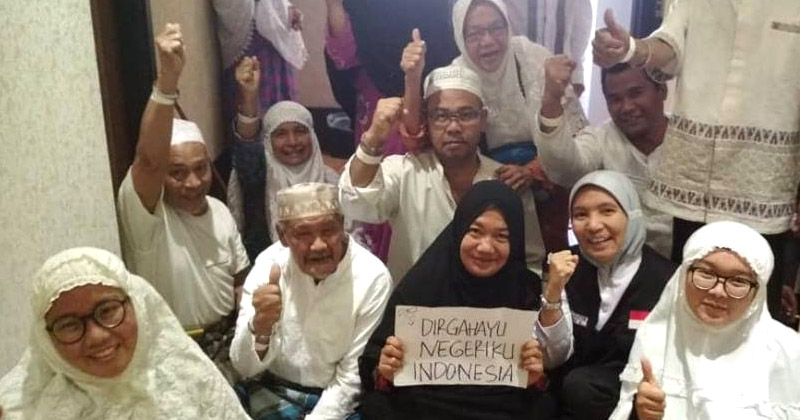 DIRGAHAYU
NEGERIKU
INDONESIA